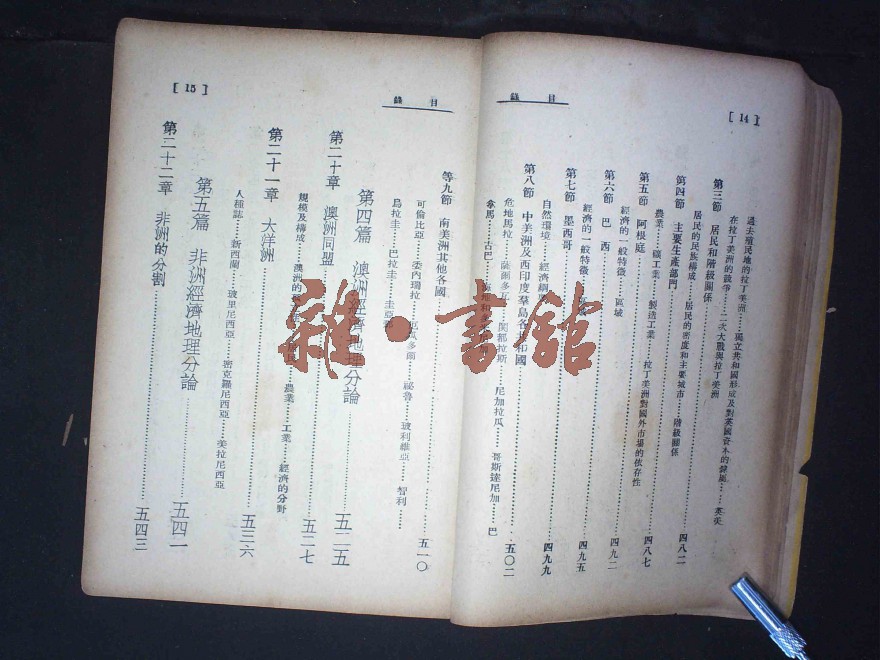 [14]
目錄
過去殖民地的拉丁美洲……獨立共和國形成及對英國資本的從屬……英美
在拉丁美洲的競爭……二次大戰與拉丁美洲
第三節 居民和階級關係……四八二
居民的民族構成……居民的密度和主要城市……階級關係
第四節 主要生產部門……四八七
農業……礦工業……製造工業……拉丁美洲對國外市場的依存性
第五節 阿根庭……四九二
經濟的一般特徵……區域
第六節 巴西……四九五
經濟的一般特徵……區域
第七節 墨西哥……四九九
自然環境……經濟
第八節 中美洲及西印度羣島各共和國……五〇二
危地馬拉……薩爾多……閎都拉斯……尼加拉瓜……哥斯達尼加……巴
拿馬……古巴
[15]
目錄
等九節 南美洲其他各國……五一〇
可倫比亞……委內瑞拉……厄瓜多爾……祕魯……玻利維亞……智利……
烏拉圭……巴拉圭……圭亞那
第四篇 澳洲經濟地理分論……五二五
第二十章 澳洲同盟……五二七
規模及構成……澳洲的……農業……工業……經濟的分野
第二十一章 大洋洲……五三六
人種誌……新西蘭……玻里尼西亞……密克羅尼西亞……美拉尼西亞
第五篇 非洲經濟地理分論……五四一
第二十二章 非洲的分割……五四三
雜·書館